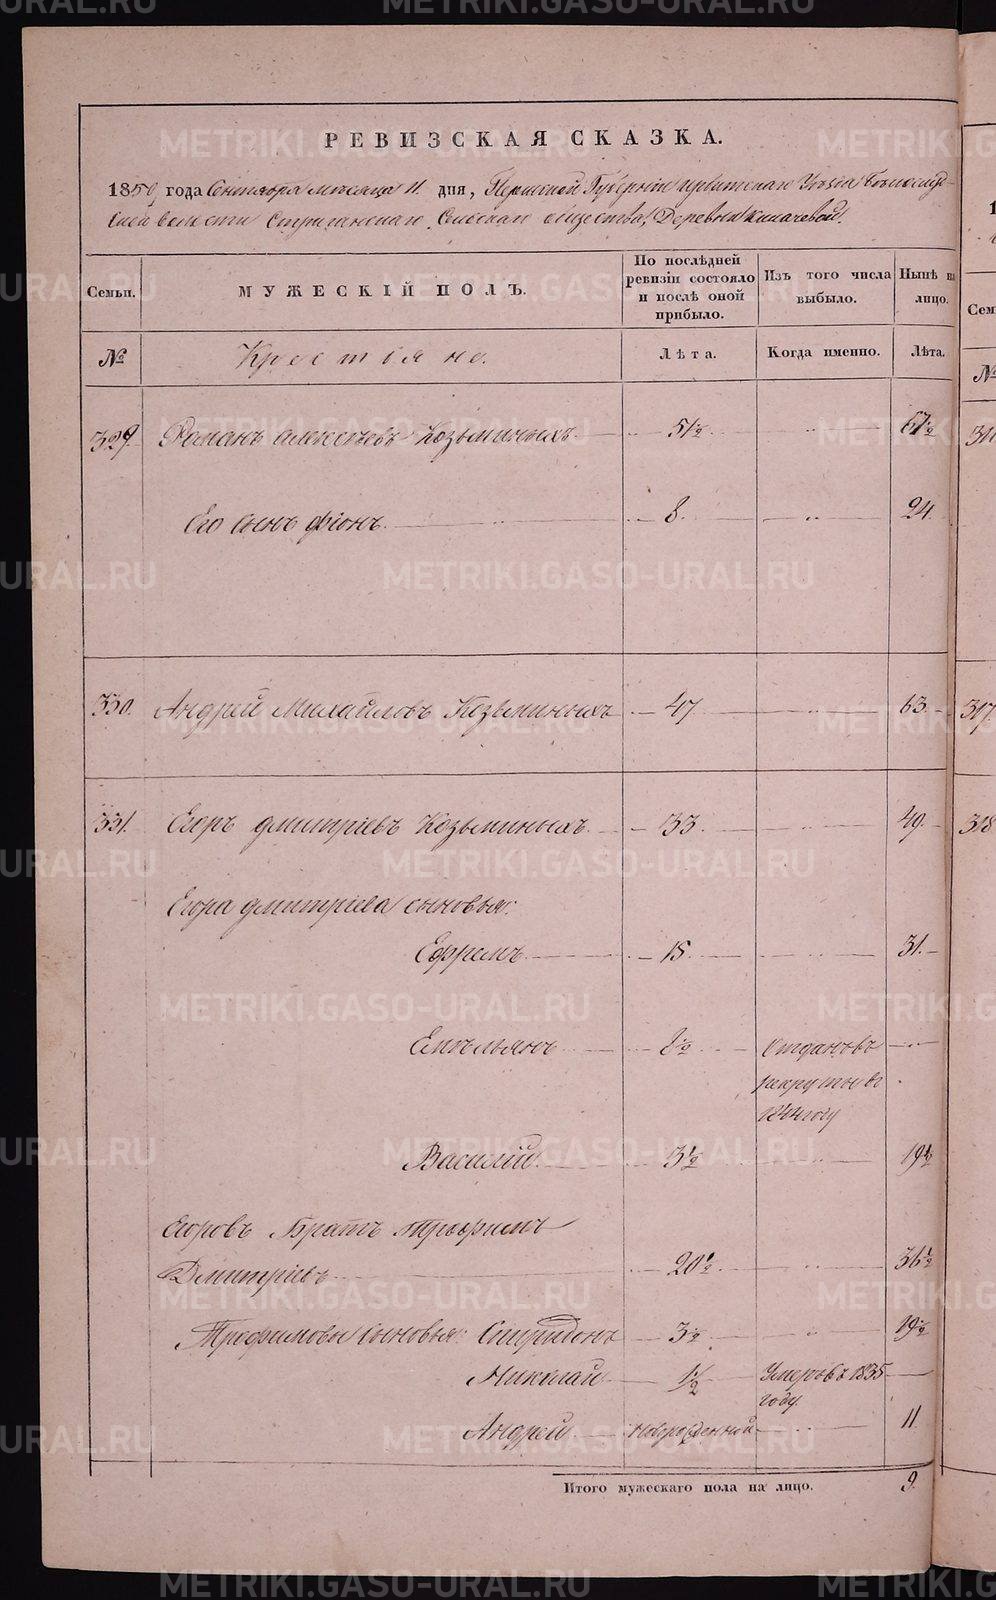 METRIKI.GASO-URAL.RU
РЕВИЗСКАЯ СКАЗКА.
1850 года Сентября месяца 11 дня, Пермской Губернии Ирбитскаго Уезда
волости Стриганскаго Сельскаго общества, Деревни Кекачевой.
Семьи. МУЖЕСКІЙ ПОЛЪ. По послѣдней ревизіи состояло и послѣ оной прибыло. Изъ того числа выбыло. Нынѣ на лицо.
№ Крестьяне. Лѣта. Когда именно. Лѣта.
329. Романъ Алексѣевъ Козьминыхъ 51½ 67½
Его сынъ Фіонъ 8. 24.
330. Андрей Михайловъ Козьминыхъ 47 63.
331. Егоръ Дмитріевъ Козьминыхъ 33. 49.
Егора Дмитриева сыновья:
Ефремъ 15. 31.
Емельянъ 8½ Отданъ въ
рекруты въ
1844 году
Василій 3½ 19½
Егоровъ Братъ Трофимъ
Дмитріевъ 20½ 36½
Трофимовы сыновья: Спиридонъ 3½ 19½
Николай 1½ Умеръ въ 1835
году.
Андрей Новорожденный 11
Итого мужескаго пола на лицо. 9.